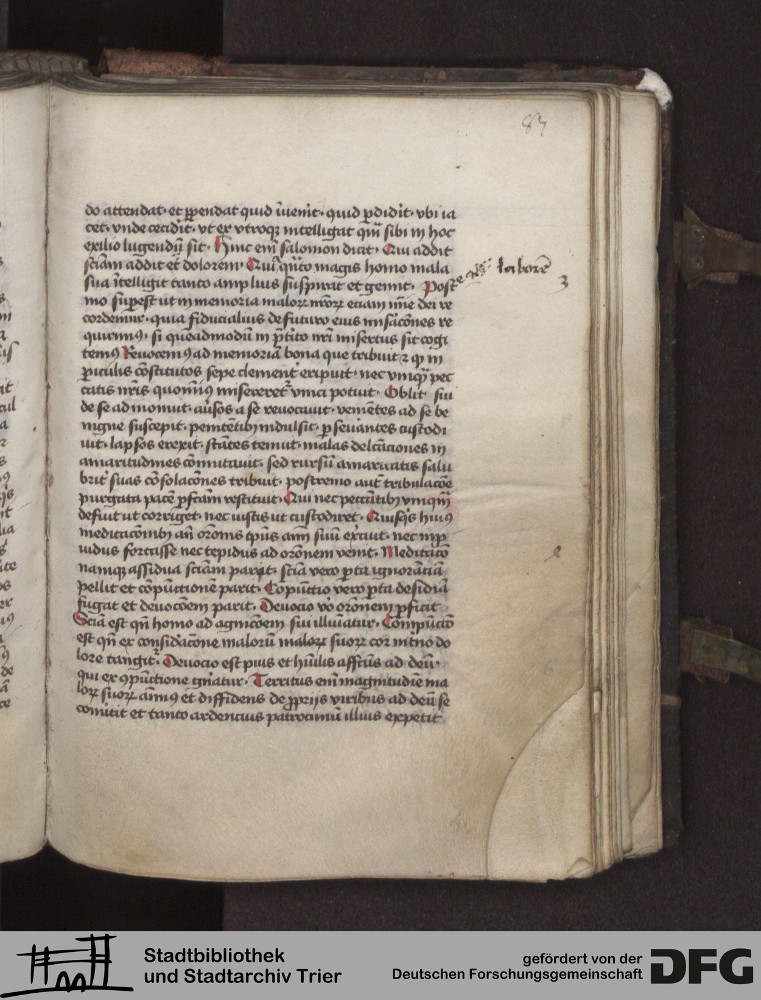 83
do attendat· et ꝑpendat quid īuenit· quid ꝑdidit· vbi ia
cet· vnde cecidit· ut ex vtroqꝫ intelligat qm̄ sibi in hoc
exilio lugendū sit· Hinc em̄ salomon dicit· Qui addit
sciām addit et dolorem· Quī qn̄to magis homo mala
sua ītelligit tanto amplius suspirat et gemit· Post
laborē
mo supest ut in memoria maloꝝ nr̄oꝝ eciam īmē dei re
cordemur· quia fiducialius de futuro eius mīsac̄ones re
quirimꝰ· si queadmodū in p̄tito nr̄i misertus sit cogi
temꝰ Reuocemꝰ ad memoriā bona que tribuit
ꝑiculis cōstitutos sepe clement̄ eripuit· nec vmqꝫ pec
catis nr̄is quominꝰ misereret᷑ vinci potuit· Oblit sui
de se ad monuit· aūsos a se reuocauit· veniētes ad se be
nigne suscepit· penitētibꝫ indulsit· ꝑseuantes custodi
uit· lapsos erexit· stātes tenuit· malas delc̄aciones in
amaritudines cōmutauit· sed rursū amaritatis salu
brit̄ suas cōsolac̄ones tribuit· postremo aut̄ tribulac̄oe
purgata pacē ꝑfcām restituit· Qui nec peccantibꝫ vmqm̄
defuit ut corriget· nec iustis ut custodiret· Quisqꝫ hiuꝰ
meditac̄onibꝫ an̄ orōnis tp̄us anm̄ suū exc̄uit· nec inp
uidus fortasse nec tepidus ad orōnem venit· Meditac̄o
namqꝫ assidua sciām parit· scīa vero ꝑta ignorāciā
pellit et cōpūctionē parit· Copūctio vero ꝑta desidiā
fugat et deuoc̄oem parit· Deuocio v̄o orōnem ꝑficit
Sciā est qn̄ homo ad agnic̄oem sui illuīatur· Compūctō
est qn̄ ex considac̄one malorū maloꝝ suoꝝ cor intno do
lore tangit᷑· Deuocio est pius et hūilis affc̄us ad deū·
qui ex ꝯpūctione gn̄atur· Territus em̄ magnitudīe ma
loꝝ suoꝝ animꝰ et diffidens de ꝓprijs viribus ad deū se
cōu̇tit et tanto ardencius patrociniū illius expetit
Stadtbibliothek
und Stadtarchiv Trier
gefördert von der
Deutschen Forschungsgemeinschaft
DFG